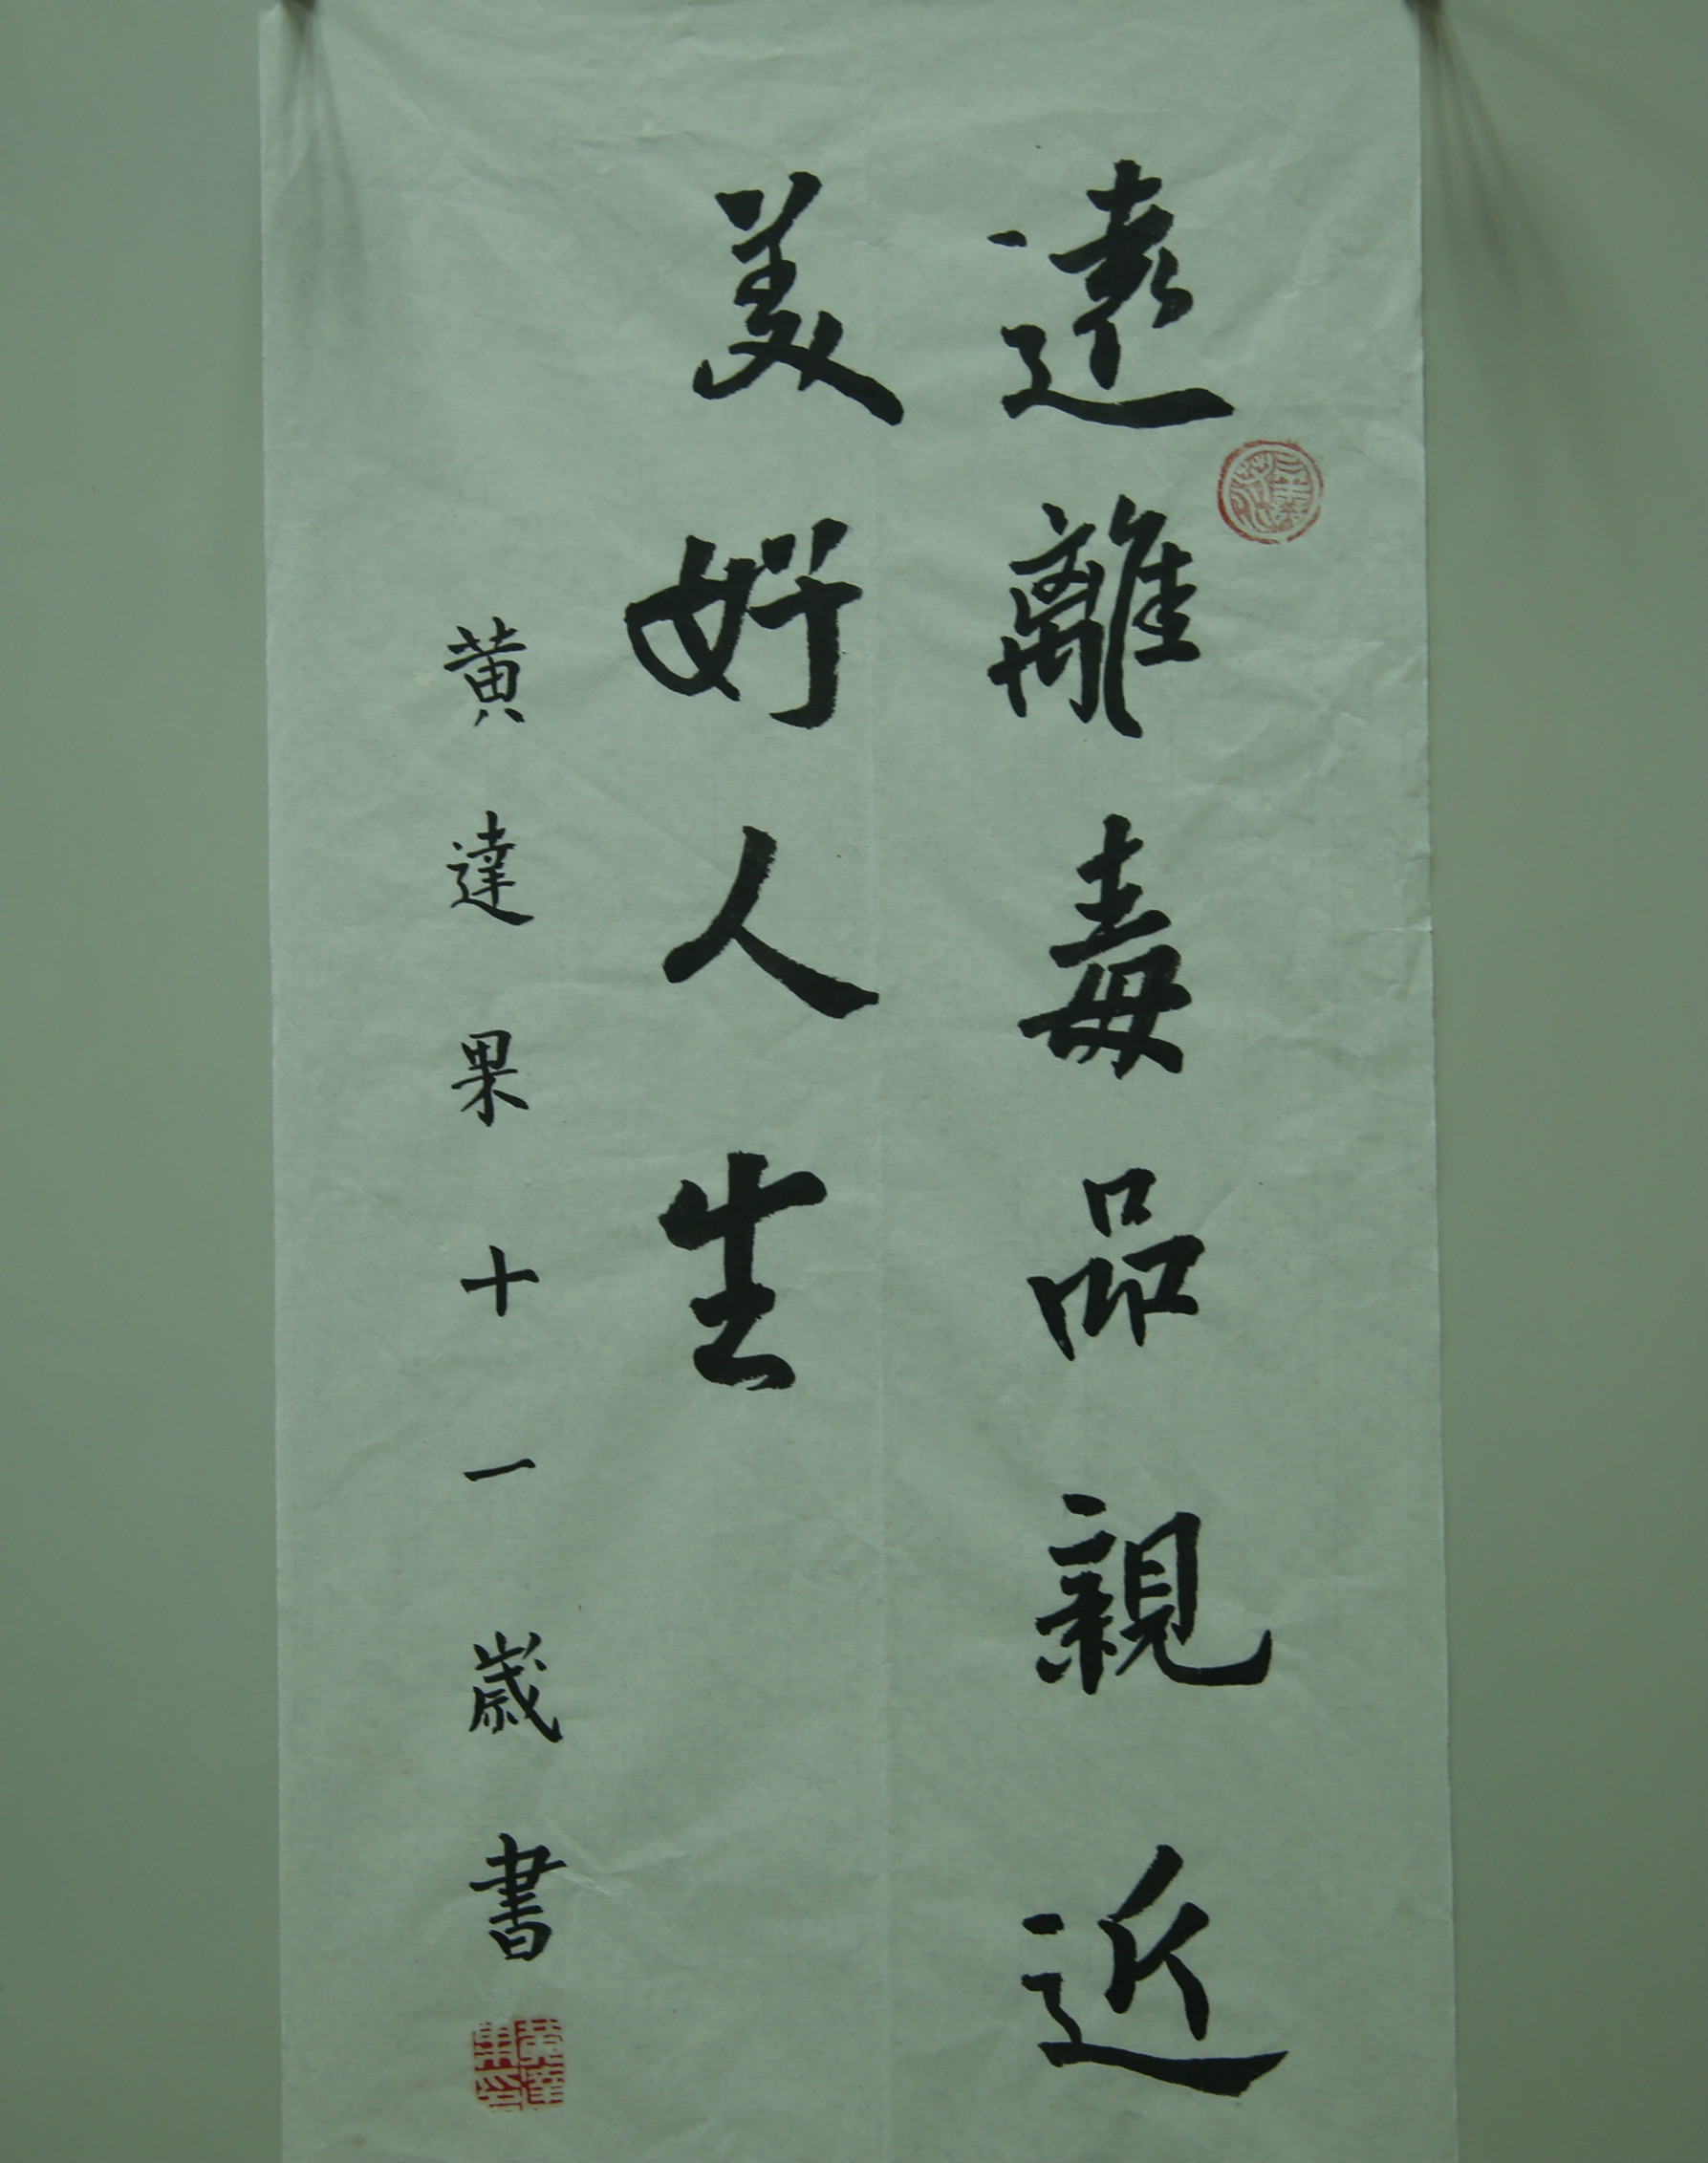 遠離毒品親近
美好人生
黄達果十一歲書